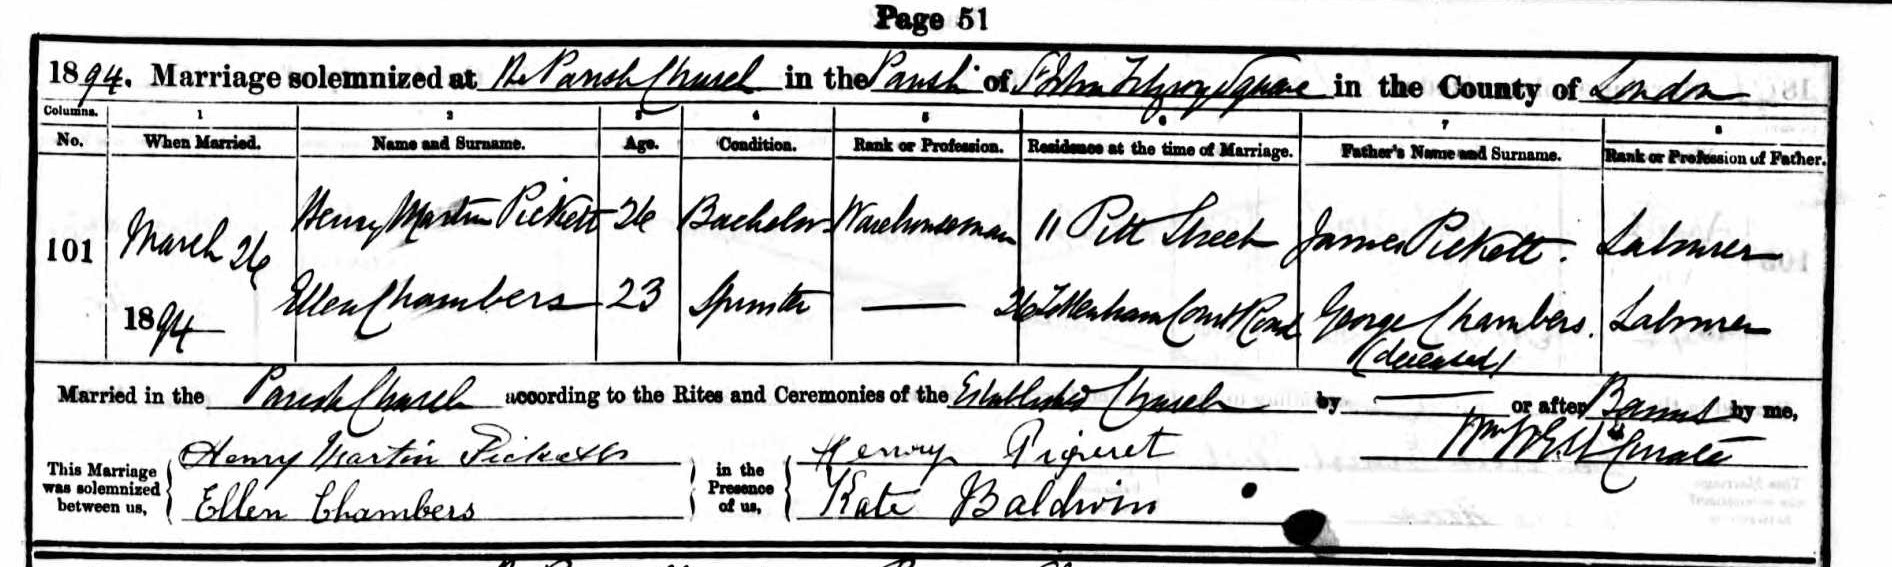 Page 51
1894. Marriage solemnized at the Parish Church in the Parish of St John Fitzroy Square in the County of London
Columns. 1 2 3 4 5 6 7 8
No. When Married. Name and Surname. Age. Condition. Rank or Profession. Residence at the time of Marriage. Father's Name and Surname. Rank or Profession of Father.
Henry Martin Pickett 26 Bachelor Warehouseman 11 Pitt Street James Pickett. Labourer
101 March 26
1894 Ellen Chambers 23 Spinster — 26 Tottenham Court Road George Chambers. Labourer
(deceased)
Married in the Parish Church according to the Rites and Ceremonies of the Established Church by — or after Banns by me,
Curate
This Marriage was solemnized between us, Henry Martin Pickett in the Presence of us, Henry
Ellen Chambers Kate Baldwin